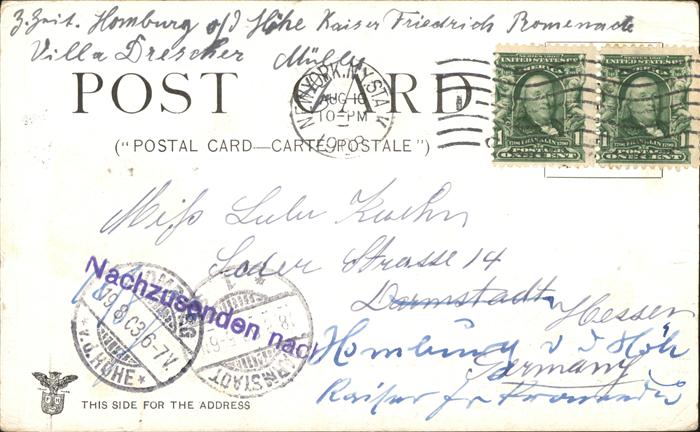 z. Zeit. Homburg v/d Höhe Kaiser Friedrich Promenade
Villa Drescher Müller
POST CARD
NEW YORK, N.Y. STA.
AUG 10
10-PM
("POSTAL CARD—CARTE POSTALE")
UNITED STATES
1 FRANKLIN 1
POSTAGE
ONE CENT
UNITED STATES
1 FRANKLIN 1
POSTAGE
ONE CENT
Miss Lulu Kuehn
Soder Strasse 14
Darmstadt Hessen
Nachzusenden nach
Homburg v d Höh
Germany
Kaiser fr Promenade
HOMBURG
19.8.03 6-7V.
v.d. HÖHE
DARMSTADT
THIS SIDE FOR THE ADDRESS